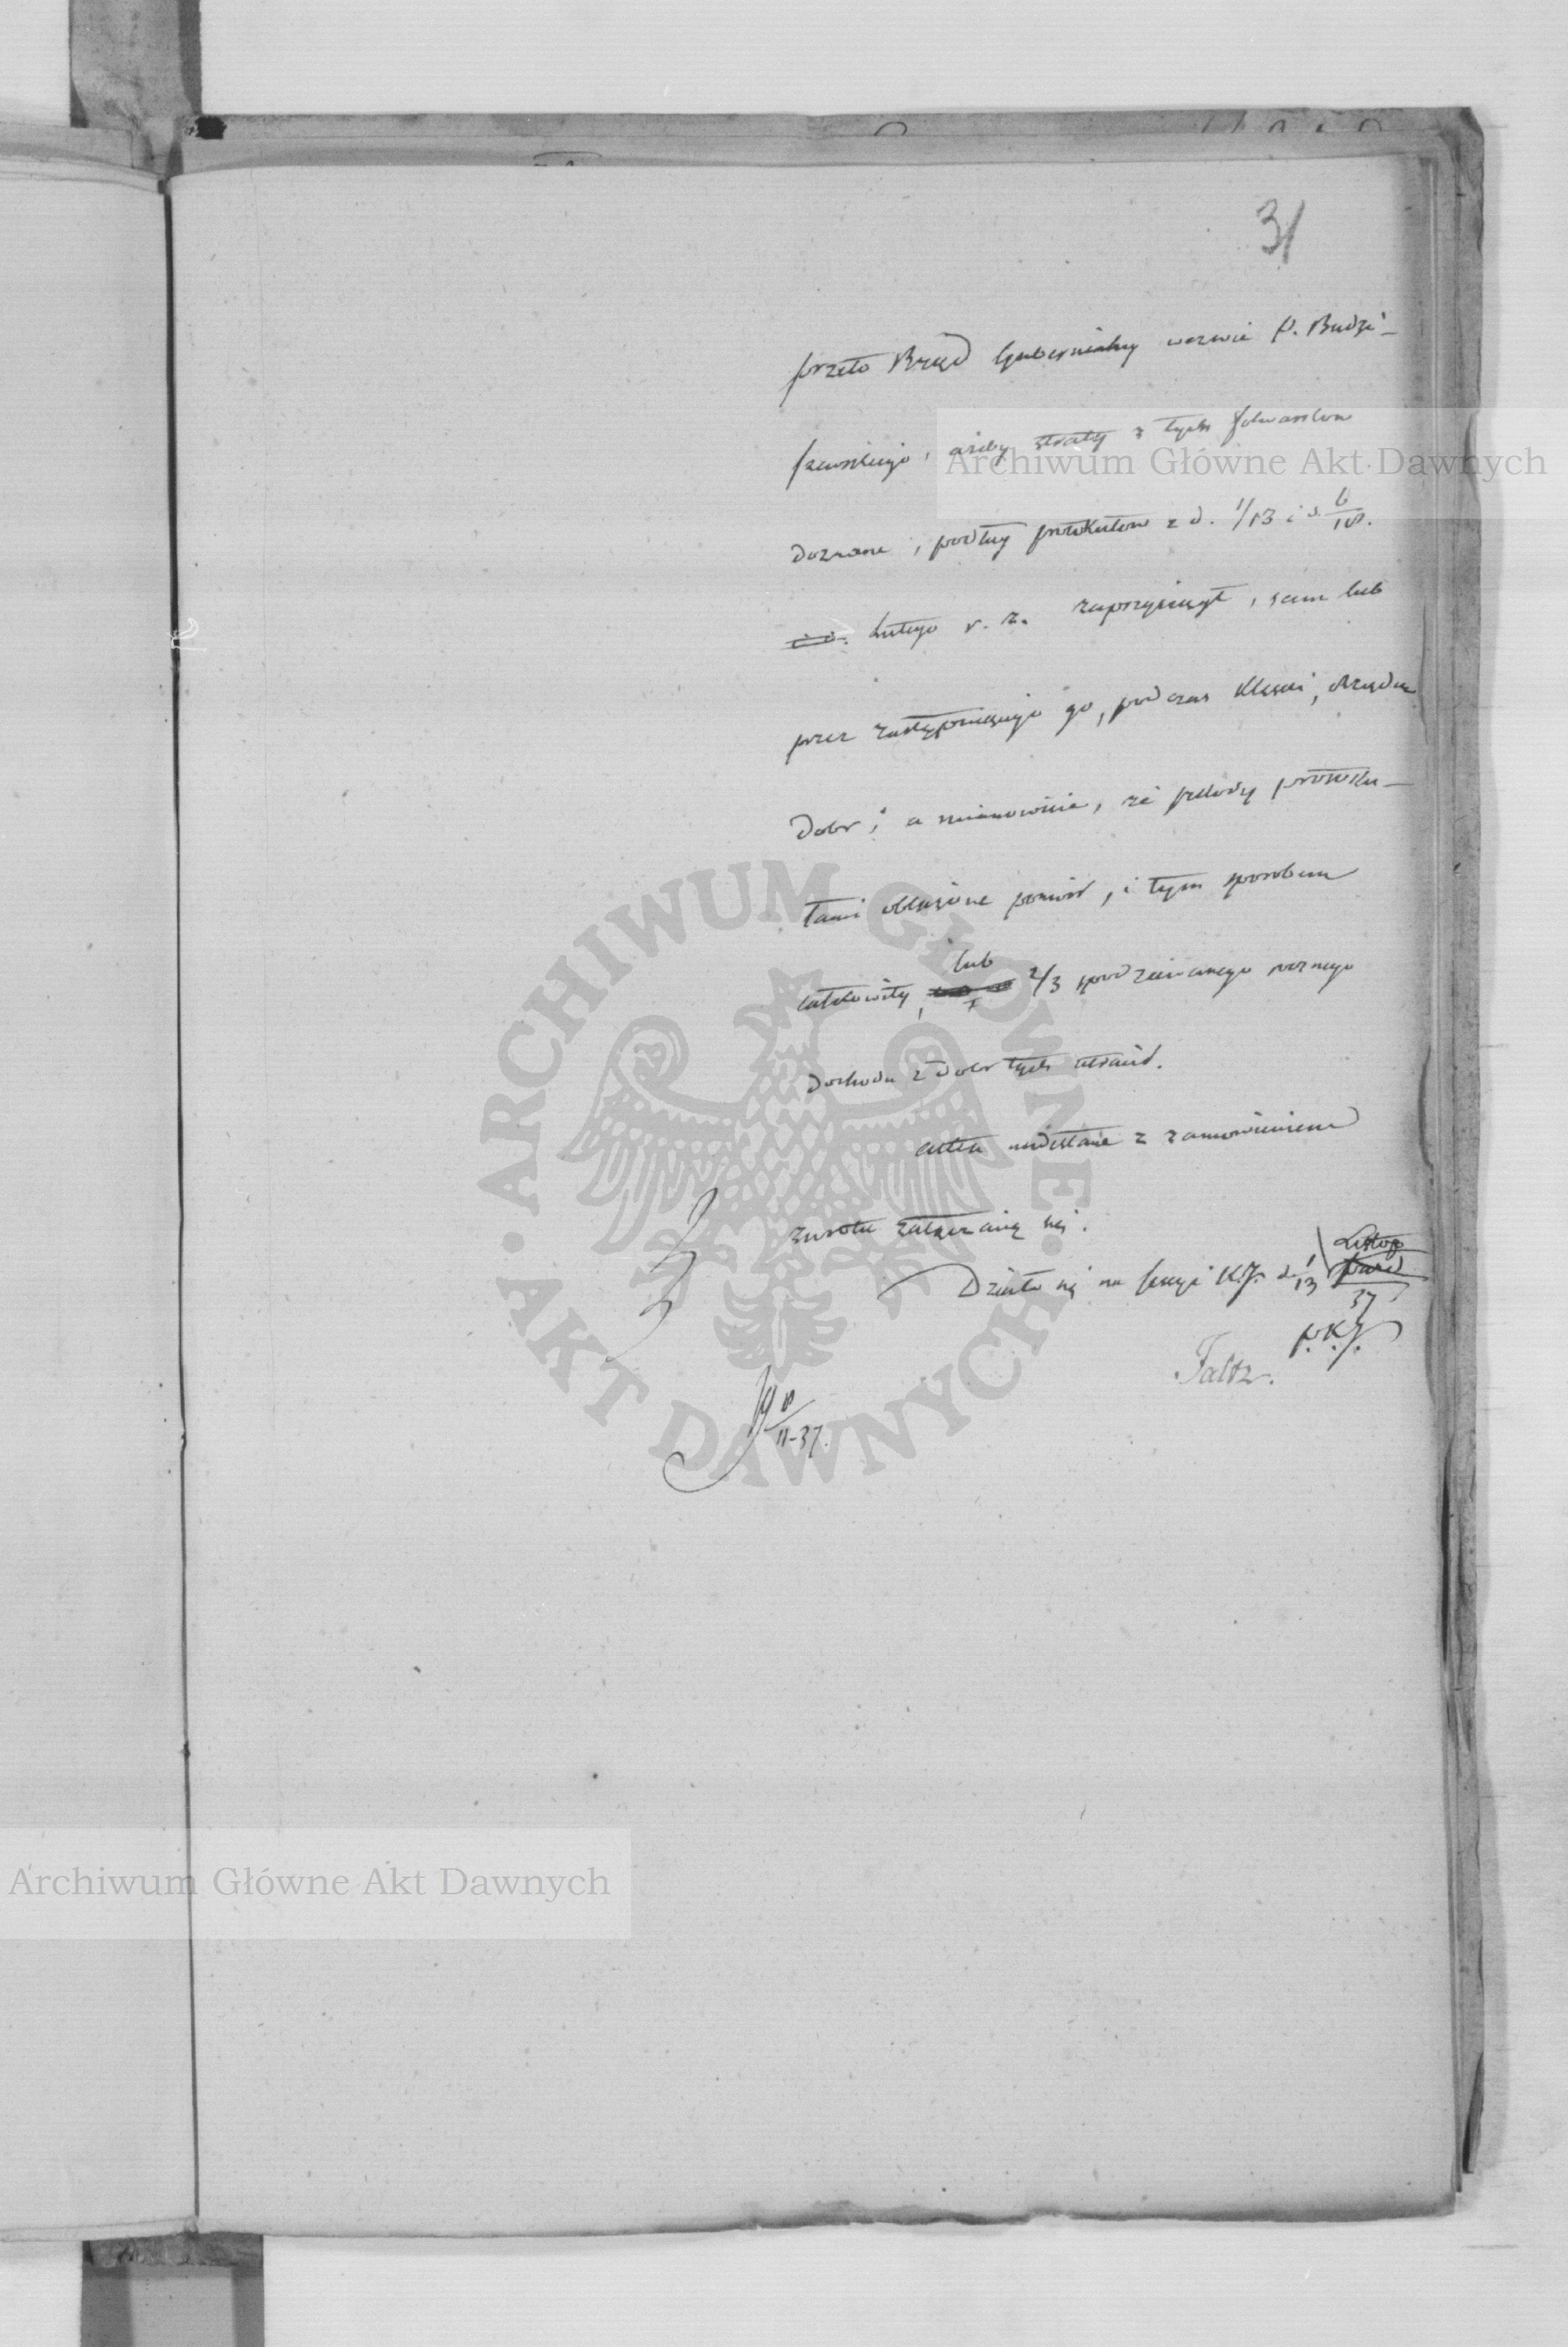 31
przeto Rząd Gubernialny wezwie P. Budzi-
szewskiego, ażeby straty z tych folwarków
doznane, podług protokułów z d. 1/13 i d. 6/18.
i d. Lutego r. z. zaprzysiągł, sam lub
przez zastępującego go, podczas klęski, Rządcę
Dobr; a mianowicie, że szkody protoku-
łami objęte poniosł, i tym sposobem
całkowity, lub 2/3 spodziewanego rocznego
dochodu z dobr tych utracił.
Akta nadesłane z zamowieniem
zwrotu załączaią się.
Działo się na Sessyi K.J. d. 1/13 Listop
pard
37
p.K.J.
Faltz.
8/11-37.
Archiwum Główne Akt Dawnych
ARCHIWUM GŁÓWNE
AKT DAWNYCH
Archiwum Główne Akt Dawnych